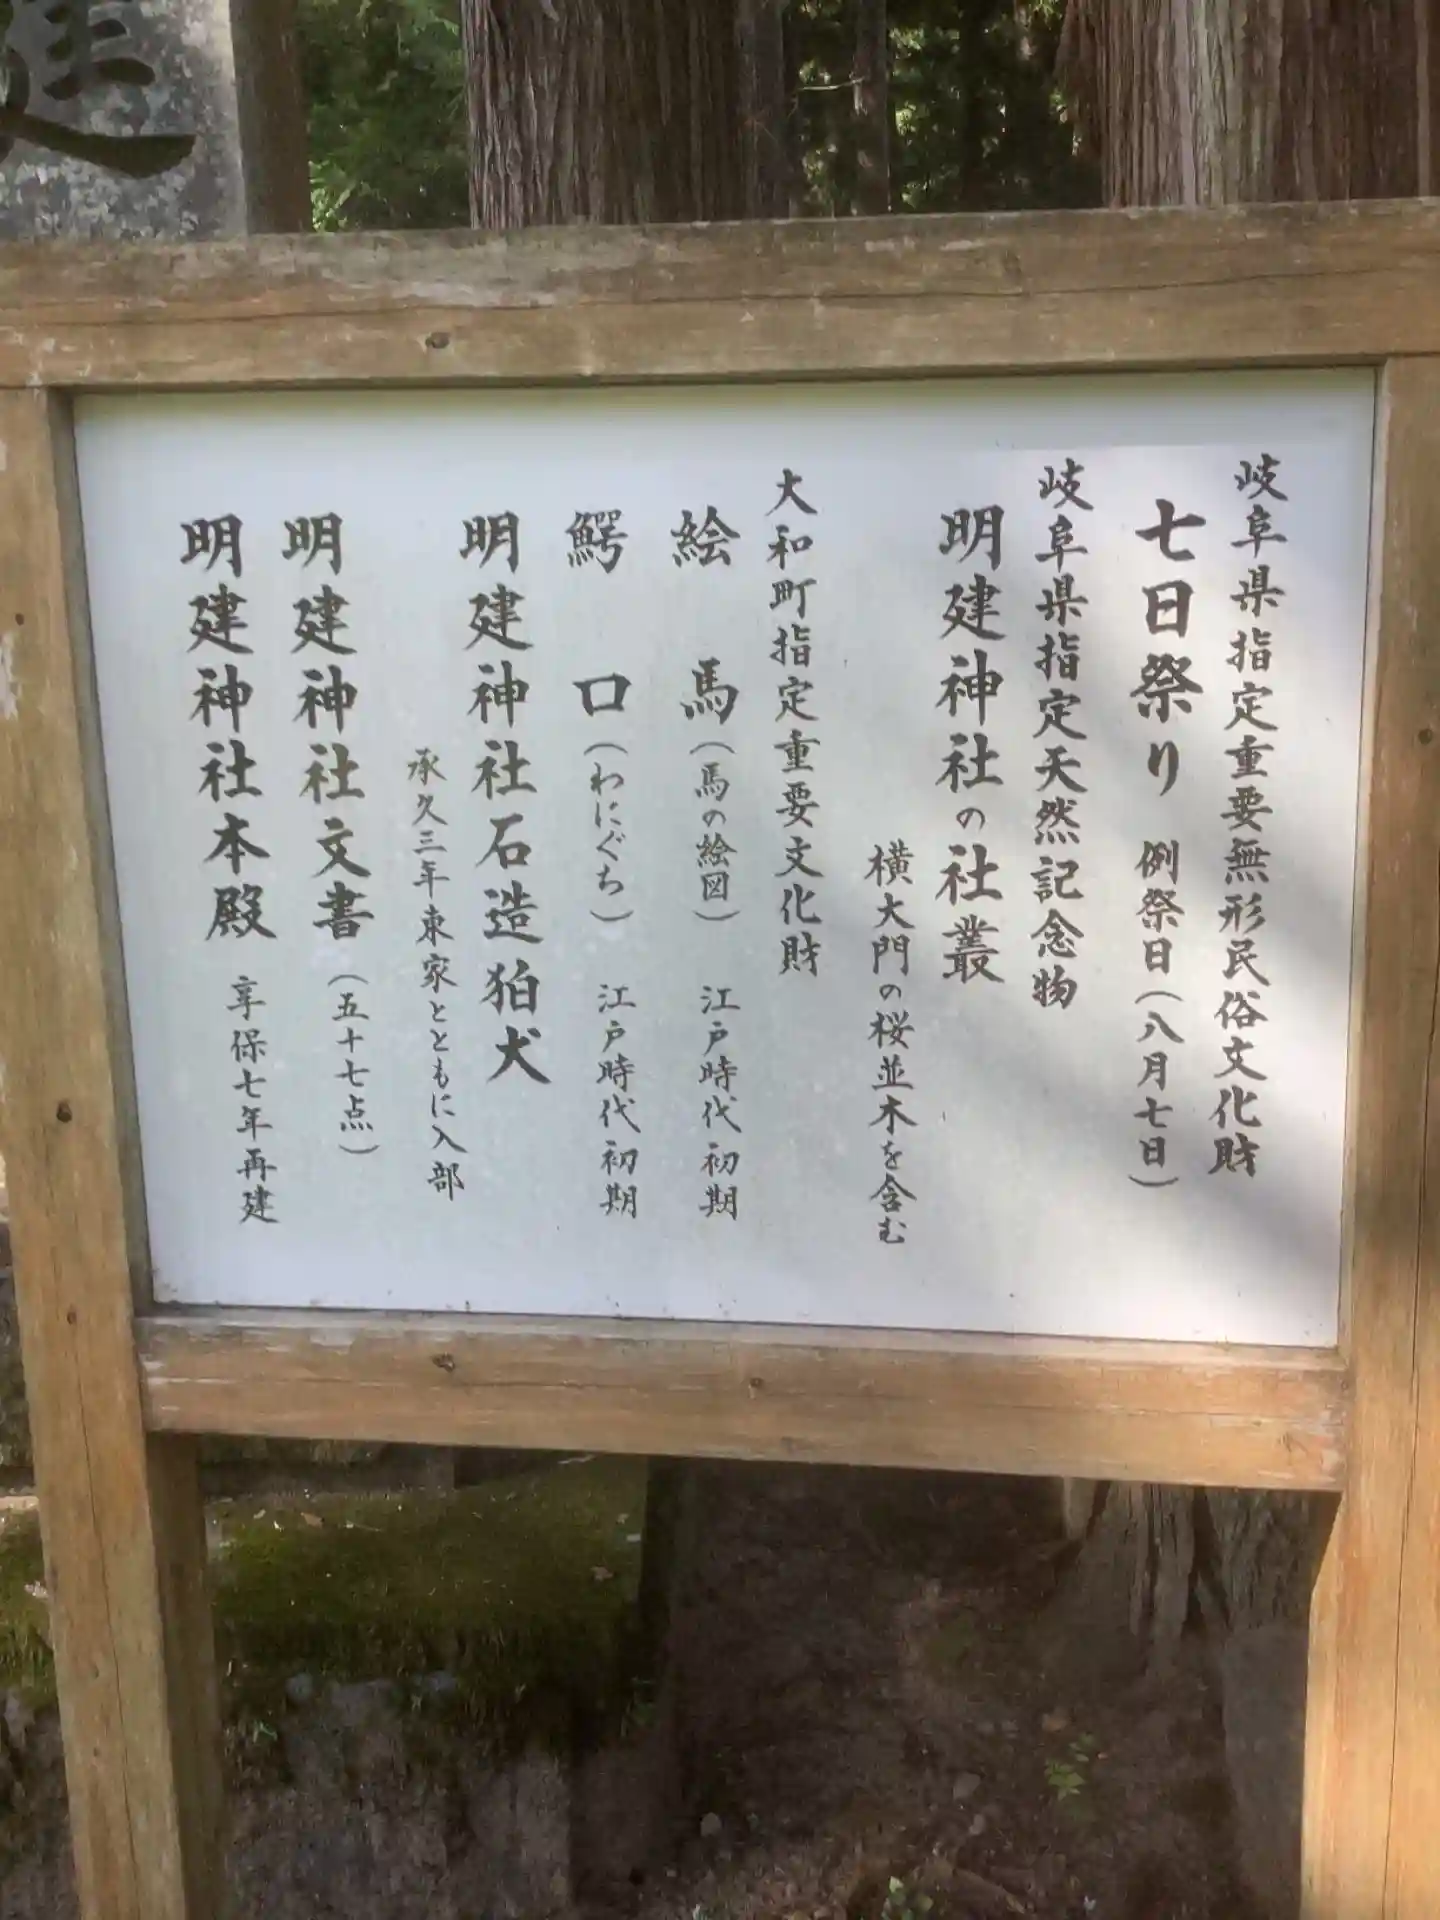 岐阜県指定重要無形民俗文化財
七日祭り 例祭日(八月七日)
岐阜県指定天然記念物
明建神社の社叢
横大門の桜並木を含む
大和町指定重要文化財
絵馬(馬の絵図) 江戸時代初期
鰐口(わにぐち) 江戸時代初期
明建神社石造狛犬
承久三年東家とともに入部
明建神社文書(五十七点)
明建神社本殿 享保七年再建
建